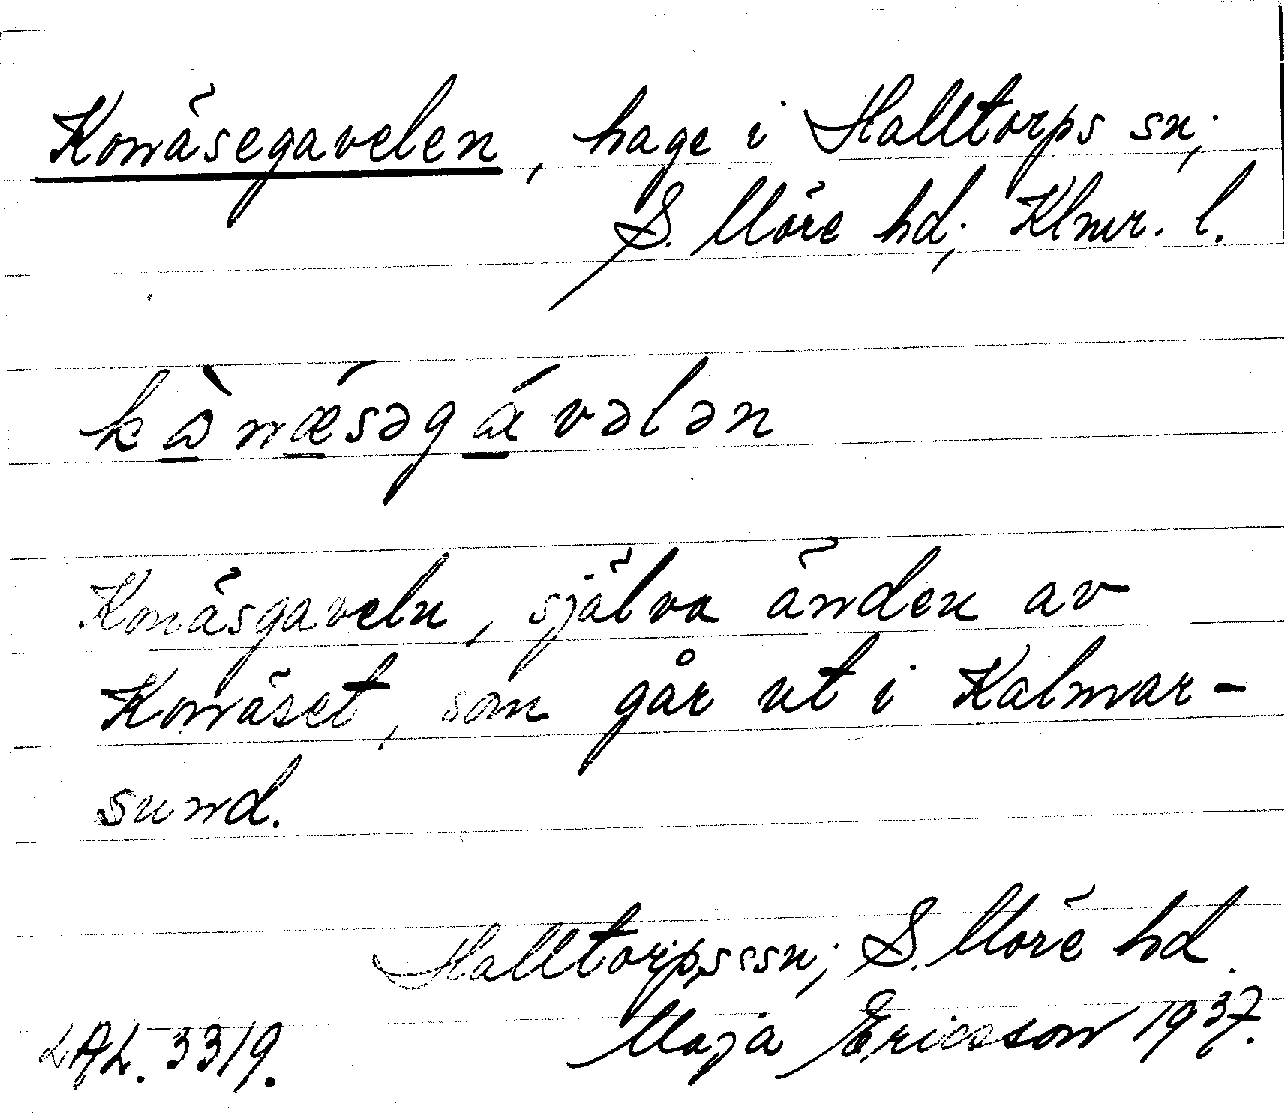 Konäsegavelen, hage i Halltorps sn;
S. Möre hd; Klmr. l.
kònǽsəgávələn
Konäsgaveln, själva änden av
Konäset, som går ut i Kalmar-
sund.
Halltorpssn; S. Möre hd.
LAL. 3319. Maja Ericsson 1937.